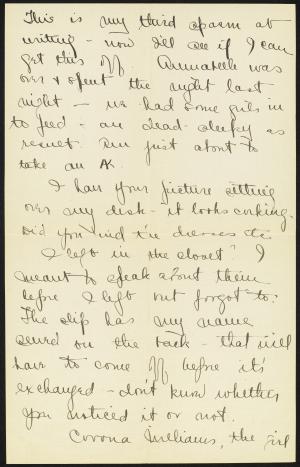 This is my third spasm at
writing - now I'll see if I can
get this off. Annabelle was
over & spent the night last
night - we had some girls in
to feed - am dead sleepy as
result. Am just about to
take an
I have your picture sitting
over my desk - it looks corking.
Did you find the dresses
I left in the closet? I
meant to speak about them
before I left but forgot to.
The slip has my name
sewed on the back - that will
have to come off before it's
exchanged - don't know whether
you noticed it or not.
Corona Williams, the girl